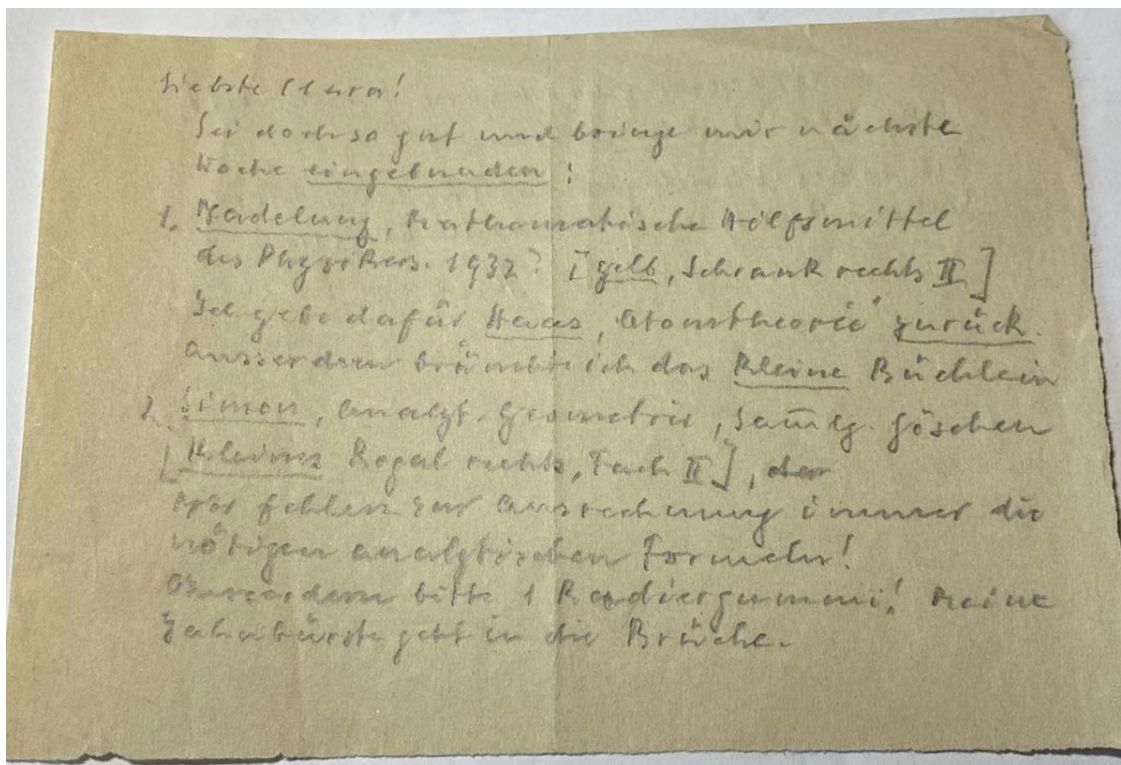 Liebste Clara!
Sei doch so gut und bringe mir nächste
Woche eingebunden:
1. Madelung, Mathematische Hilfsmittel
des Physikers. 1932? [gelb, Schrank rechts II]
Ich gebe dafür Haas, "Atomtheorie" zurück.
Ausserdem bräuchte ich das kleine Büchlein
2. Simon, Analyt. Geometrie, Sam̄lg. Göschen
[Kleines Regal rechts, Fach II], der
Mir fehlen zur Ausrechnung immer die
nötigen analytischen Formeln!
Ausserdem bitte 1 Radiergummi! Meine
Zahnbürste geht in die Brüche.